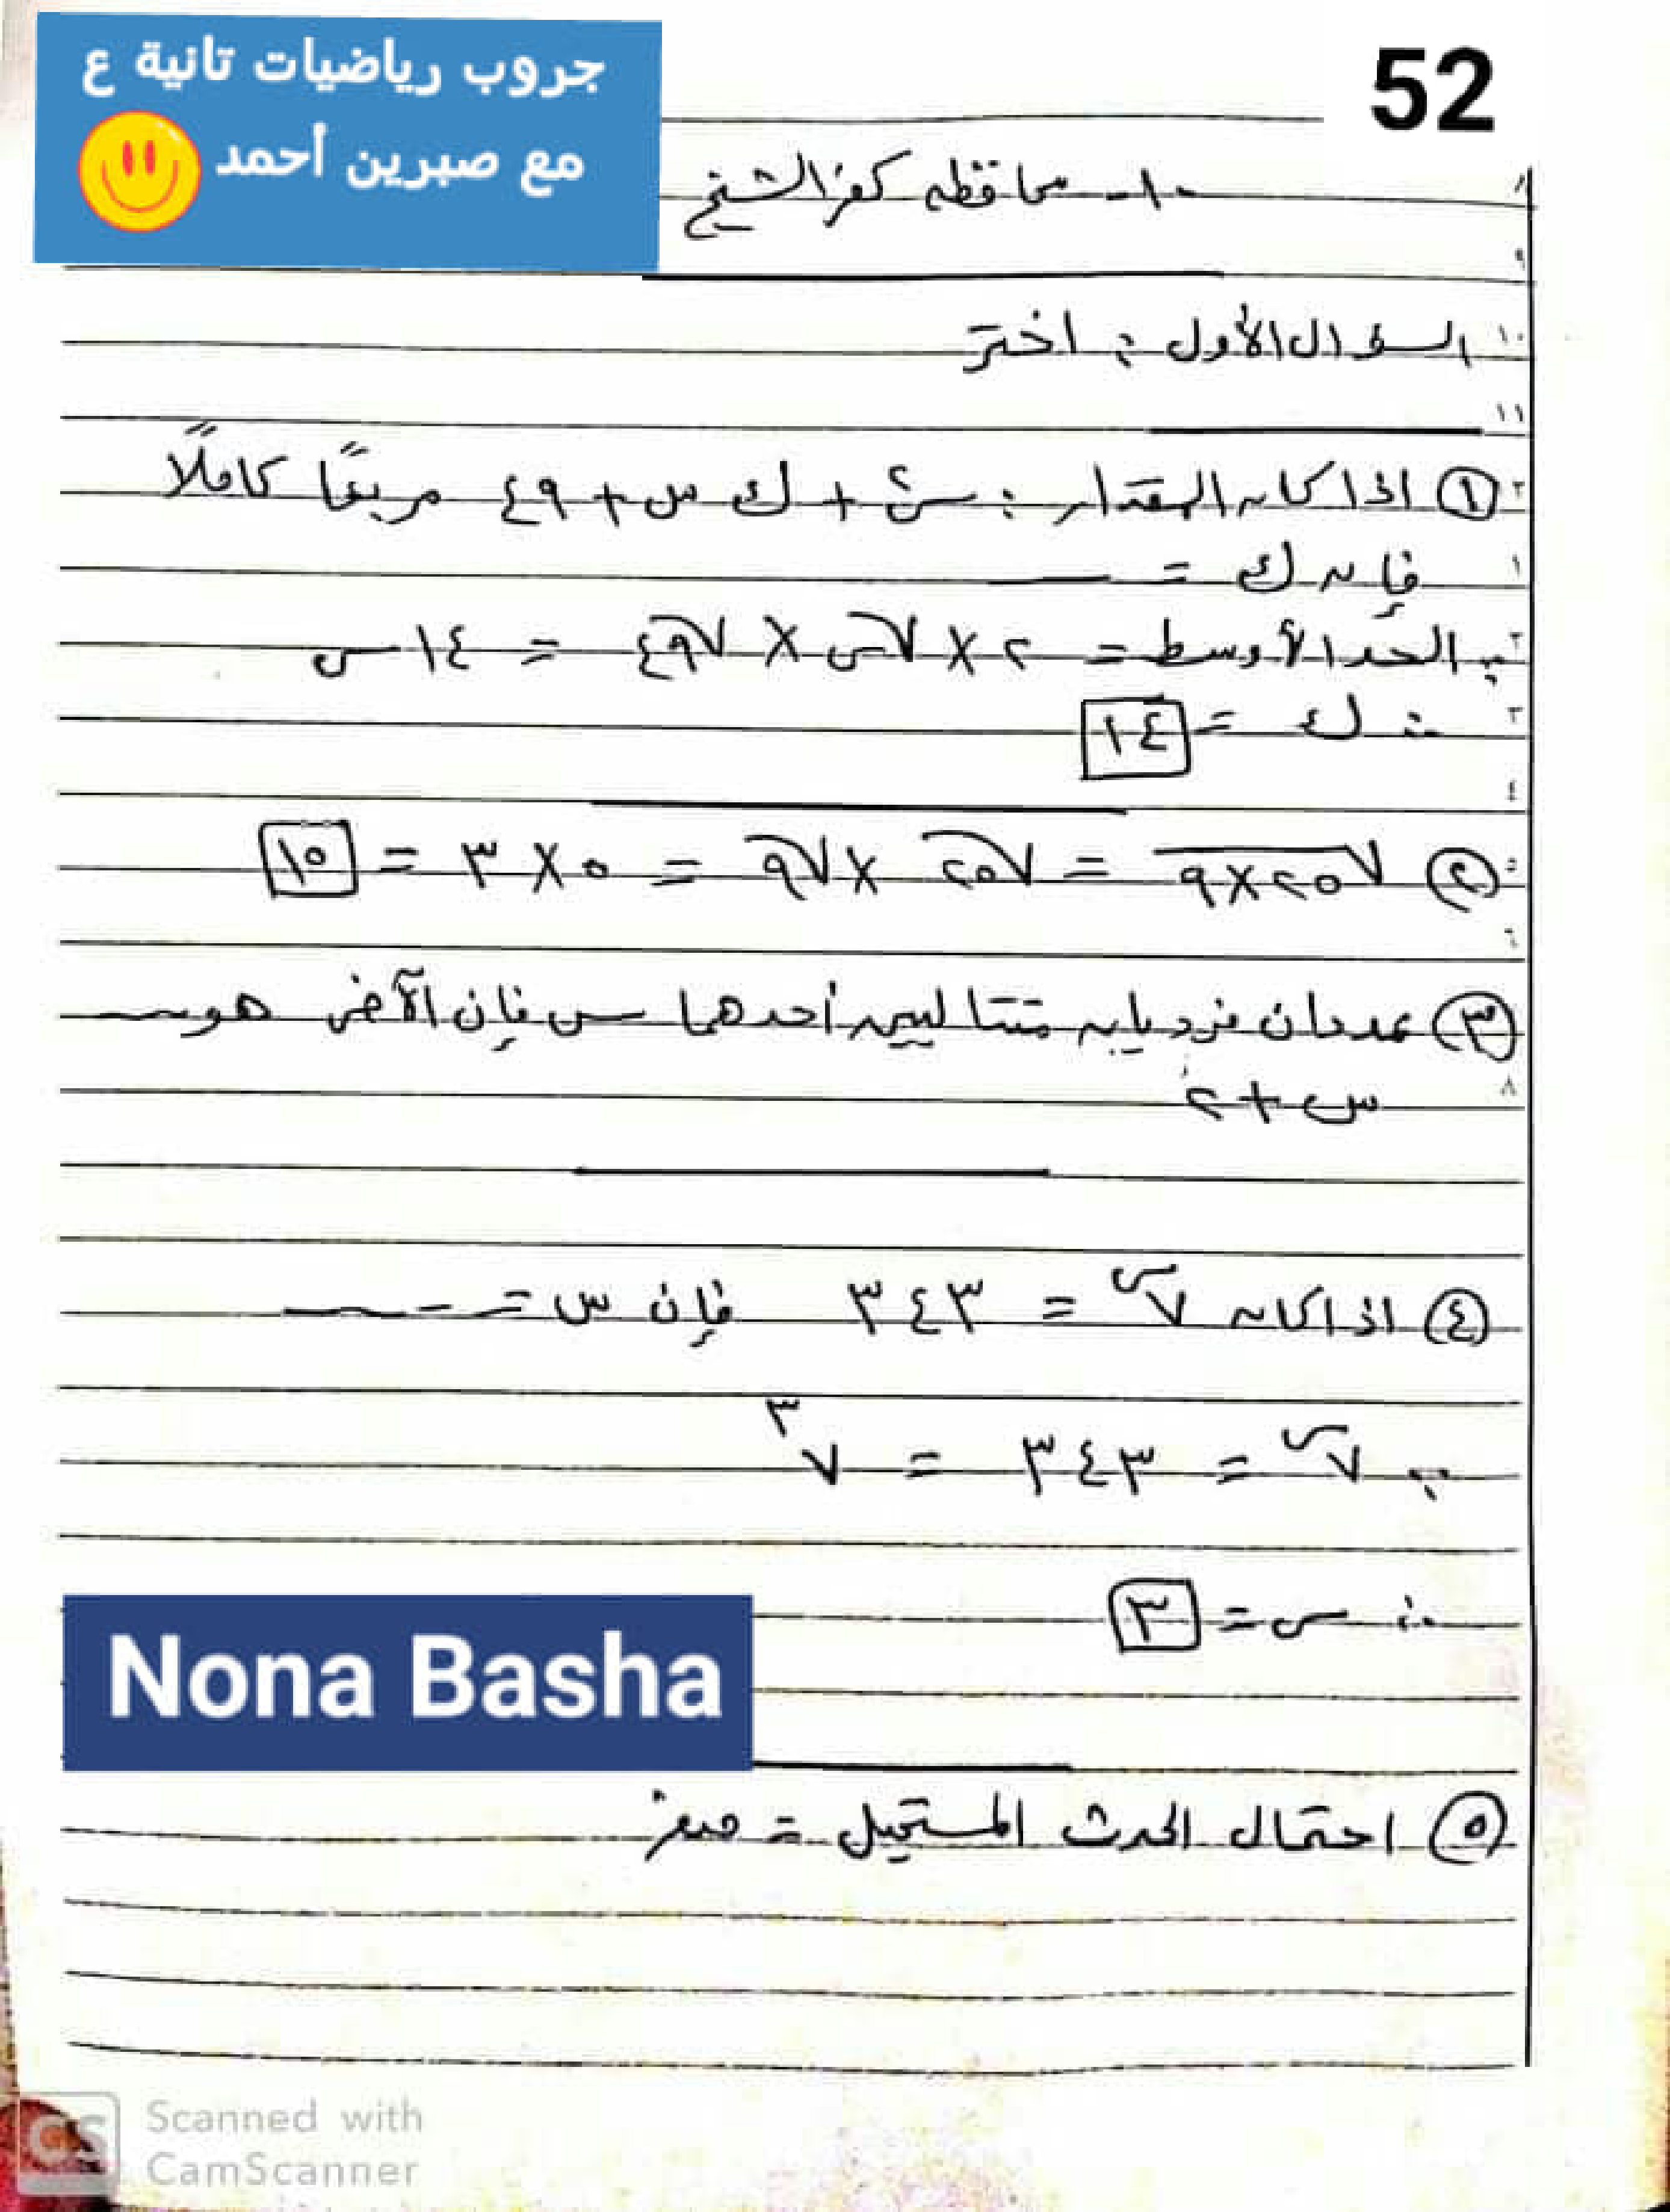 جروب رياضيات تانية ع
مع صبرين أحمد
52
١٠- محافظه كفر الشيخ
السؤال الأول : اختر
① اذا كان المقدار : س٢ + ك س + ٤٩ مربعًا كاملًا
فإن ك = ــــ
∵ الحد الأوسط = ٢ × √س٢ × √٤٩ = ١٤ س
∴ ك = ١٤
② √٢٥×٩ = √٢٥ × √٩ = ٥ × ٣ = ١٥
③ عددان فرديان متتاليين أحدهما س فإن الآخر هو ــــ
س + ٢
④ اذا كان ٧^س = ٣٤٣ فإن س = ــــ
∵ ٧^س = ٣٤٣ = ٧^٣
∴ س = ٣
Nona Basha
⑤ احتمال الحدث المستحيل = صفر
CS Scanned with
CamScanner